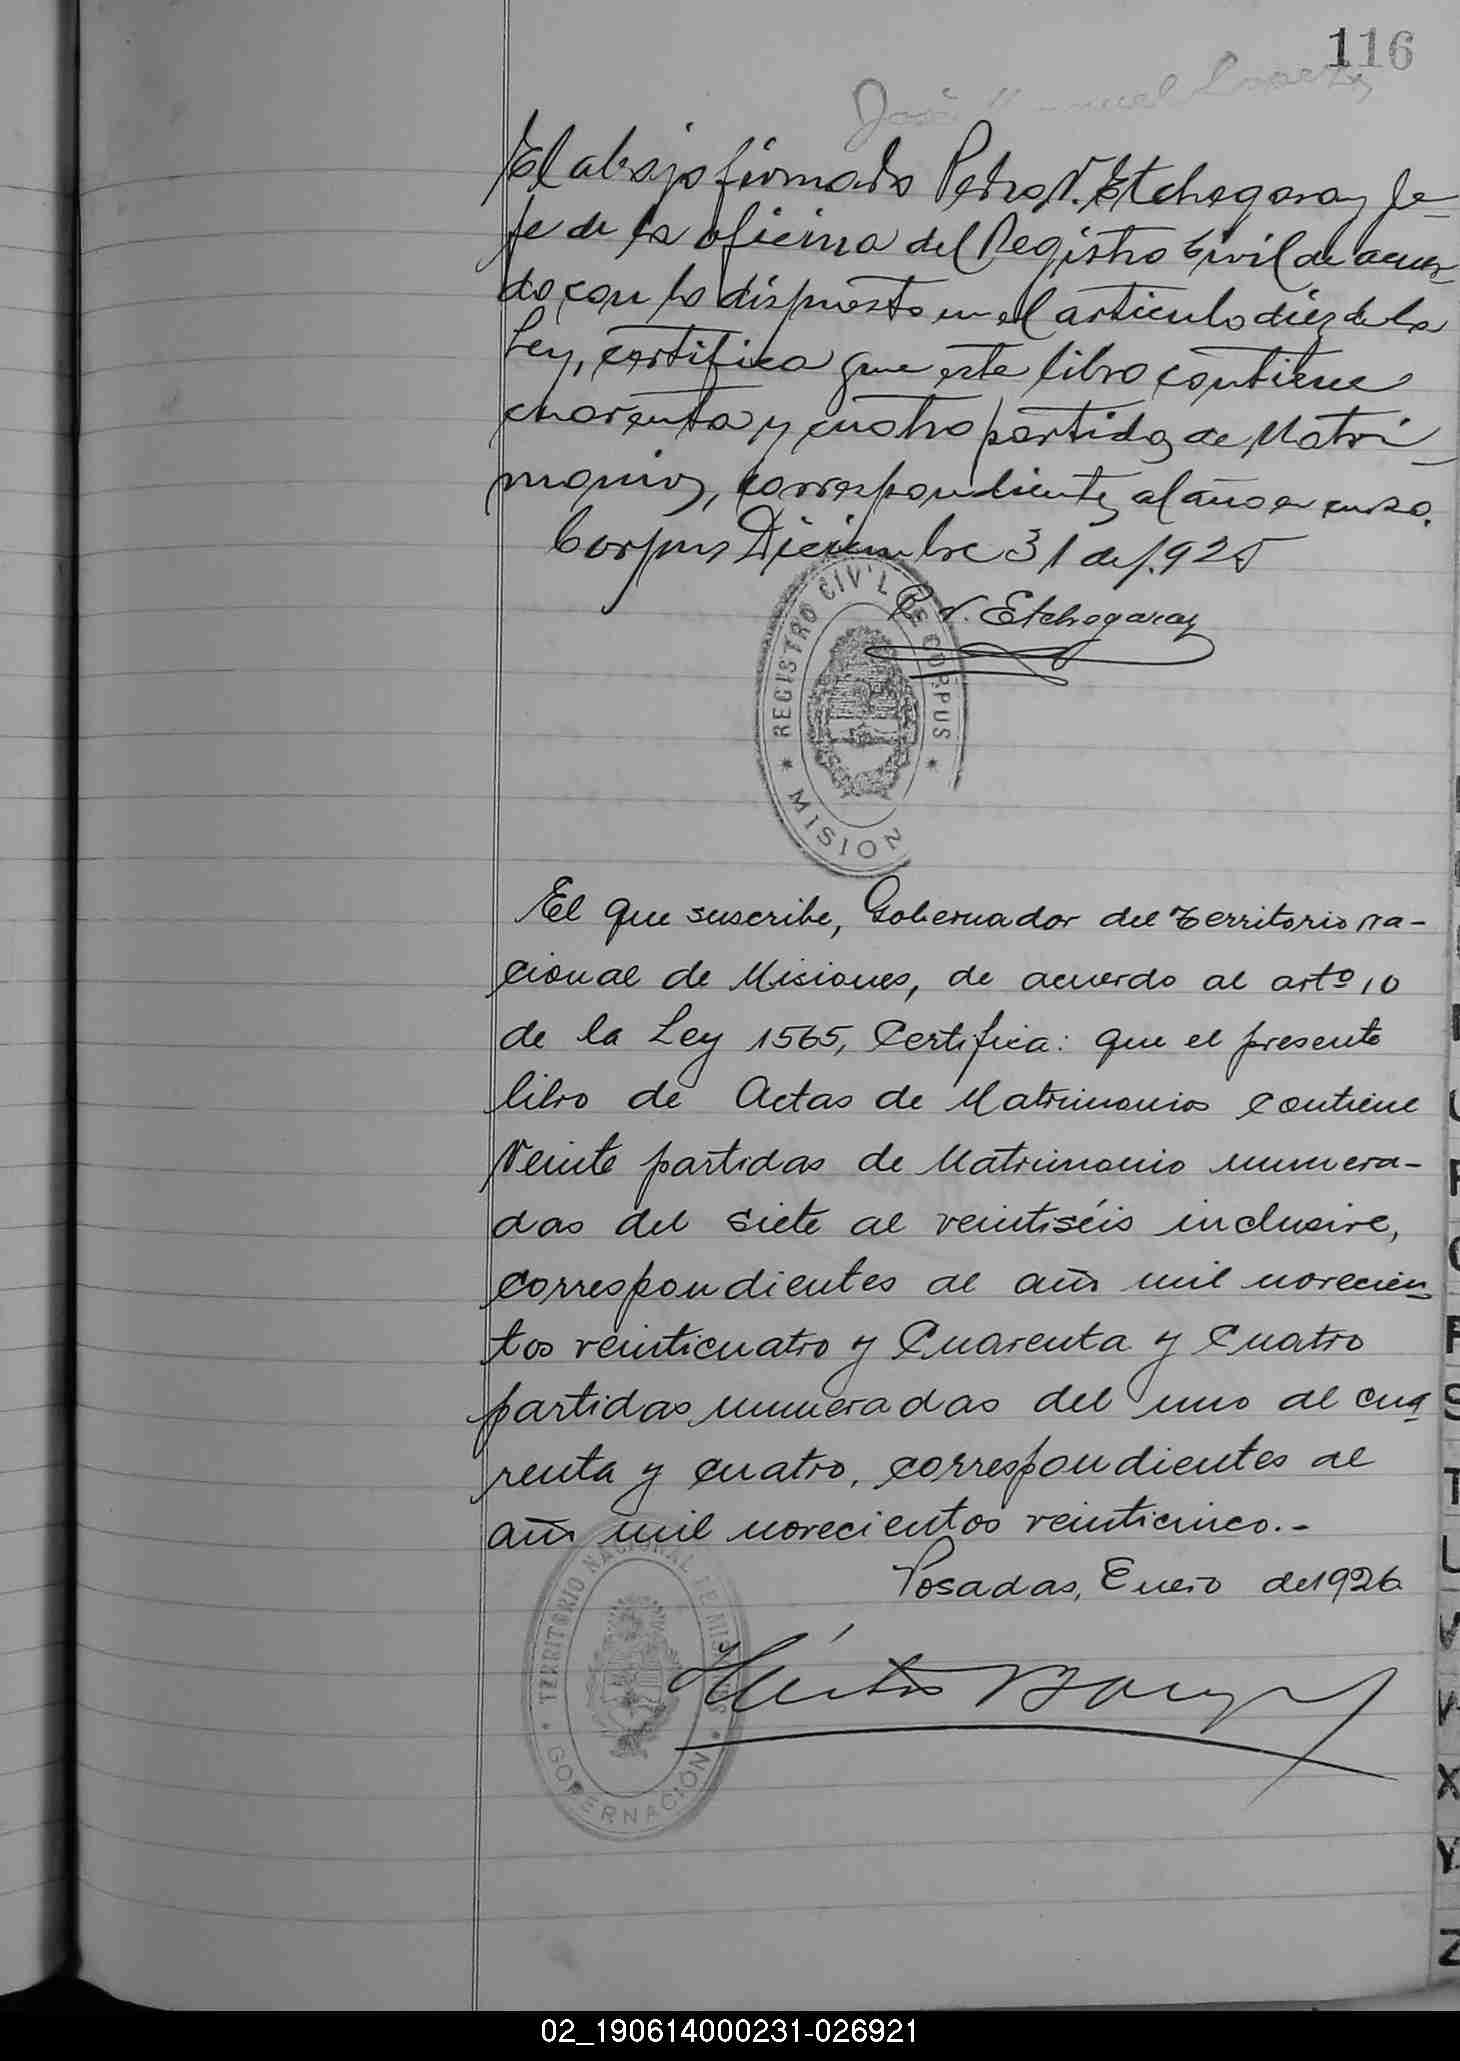 116
José Manuel
El abajo firmado Pedro N. Etchegaray Je-
fe de la oficina del Registro Civil de acuer
do con lo dispuesto en el articulo diez de la
Ley, certifica que este libro contiene
cuarenta y cuatro partidas de Matri-
monios, correspondientes al año en curso.
Corpus Diciembre 31 de 1.925
P. N. Etchegaray
REGISTRO CIVIL DE CORPUS
* MISION *
El que suscribe, Gobernador del Territorio Na-
cional de Misiones, de acuerdo al artº 10
de la Ley 1565, Certifica: que el presente
libro de Actas de Matrimonios contiene
Veinte partidas de Matrimonio numera-
das del siete al veintiséis inclusive,
correspondientes al año mil novecien
tos veinticuatro y Cuarenta y Cuatro
partidas numeradas del uno al cua
renta y cuatro, correspondientes al
año mil novecientos veinticinco.-
Posadas, Enero de 1926
TERRITORIO NACIONAL DE MISIONES
* GOBERNACIÓN *
U
P
S
T
U
V
W
X
Y
Z
02_190614000231-026921